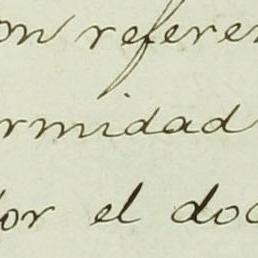 on referen
rmidad
or el doc